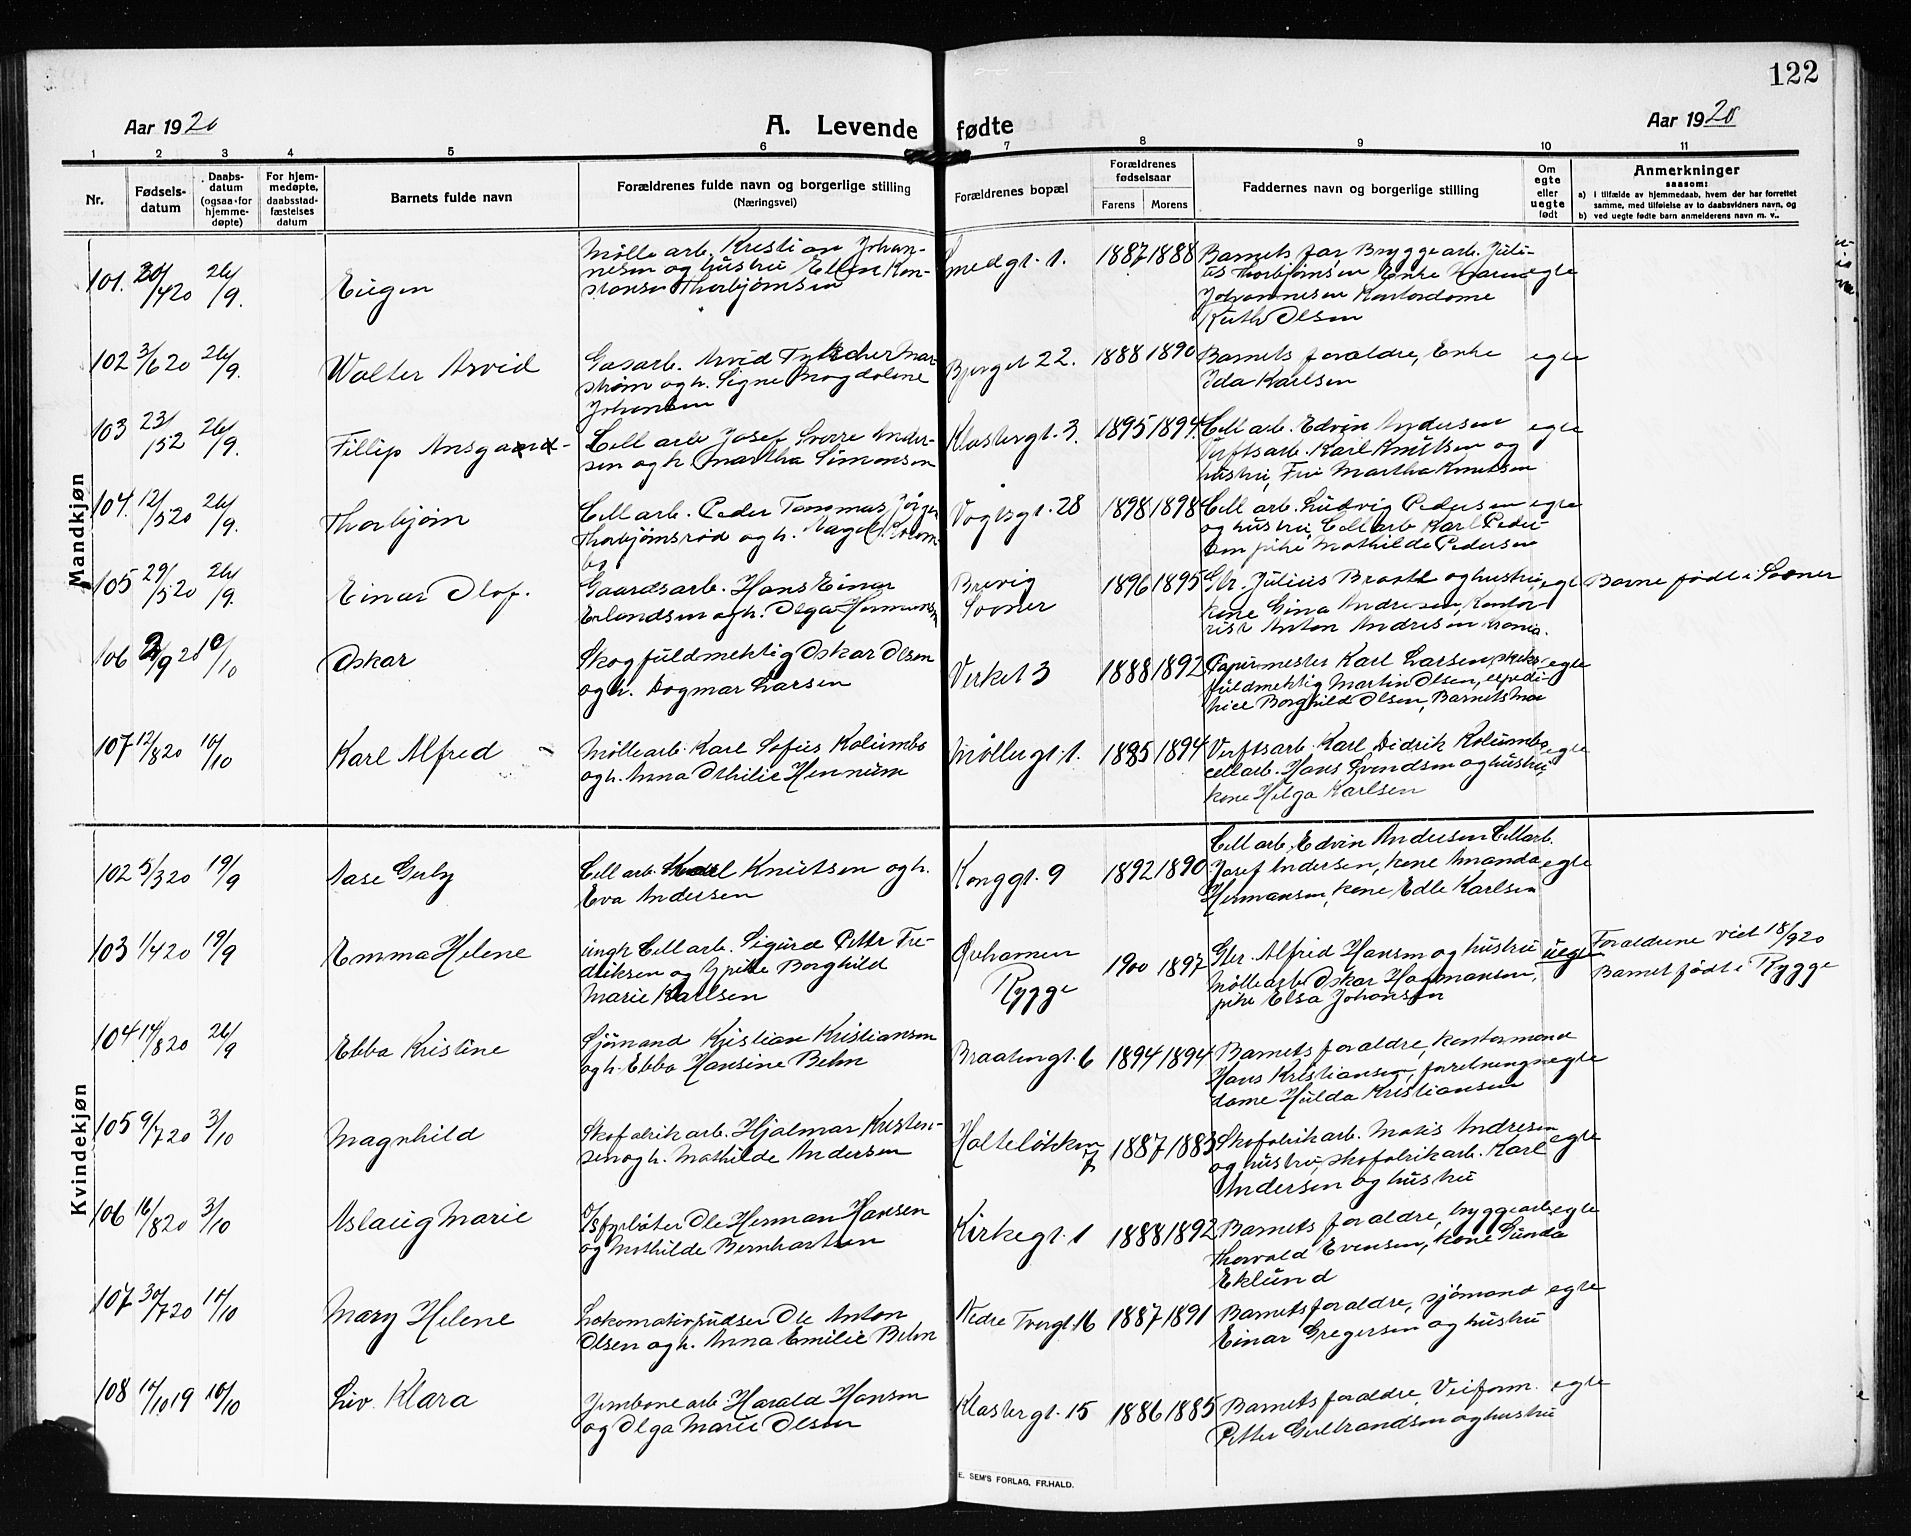 122
Aar 1920
A. Levende fødte
Aar 1920
1 2 3 4 5 6 7 8 9 10 11
Nr.
Fødsels-
datum
Daabs-
datum
(ogsaa for
hjemme-
døpte)
For hjem-
medøpte,
daabsstad-
fæstelses
datum
Barnets fulde navn
Forældrenes fulde navn og borgerlige stilling
(Næringsvei)
Forældrenes bopæl
Forældrenes
fødselsaar
Farens Morens
Faddernes navn og borgerlige stilling
Om
egte
eller
uegte
født
Anmerkninger
saasom:
a) i tilfælde av hjemmedaab, hvem der har forrettet
samme, med tilføielse av to daabsvidners navn, og
b) ved uegte fødte barn anmelderens navn m. v..
Mandkjøn
101. 20/4 20 26/9. Eugen
Møllearb. Kristian Johan-
nesen og hustru Ellen Kon-
stanse Thorbjørnsen
Smedgt. 1. 1887 1888
Barnets far, Bryggearb. Juli-
us Thorbjørnsen Enke Maren
Johannesen Kontordame
Ruth Olsen
egte
102 3/6 20 26/9. Walter Arvid
Gasarb. Arvid Mar-
strøm og h. Signe Magdalene
Johansen
Bjerget 22. 1888 1890
Barnets forældre, Enke
Ida Karlsen
egte
103 23/5 2 26/9. Fillip Ansga
Cell arb. Josef Sverre Ander-
sen og h. Martha Simonsen
Klostergt. 3. 1895 1894
Cell arb. Edvin Andersen
Verftsarb. Karl Knutsen og
hustru, Fru Martha Knutsen
egte
104. 12/5 20 26/9. Thorbjørn
Cellarb. Peder Tommas Jørgen
Thorbjørnsrød og h. Nagel
Vogtsgt. 28 1898 1898
Cell arb. Ludvig Pedersen
og hustru, Cellarb Karl Peder-
sen pike Mathilde Pedersen
egte
105 29/5 20 26/9. Einar Olof.
Gaardsarb. Hans Einar
Erlandsen og h. Olga Hermansen
Brevig
Sooner
1896 1895
Gbr. Julius Braatt og hustru,
kone Gina Andresen, Kontor-
rist Anton Andresen
egte
Barne født i Sooner
106 2/9 20 10/10 Oskar
Skogfuldmektig Oskar Olsen
og h. Dagmar Larsen
Verket 3 1888 1892
Papirmester Karl Larsen,
fuldmektig Martin Olsen, expedi-
trice Borghild Olsen, Barnets mor
egte
107 12/8 20 10/10 Karl Alfred
Møllearb. Karl Sofus Kolumbo
og h. Anna Othilie Hennum
Møllergt. 1. 1895 1894
Verftsarb. Karl Didrik Kolumbo
cellarb. Hans Svendsen og hustru,
kone Helga Karlsen
egte
Kvindekjøn
102 5/3 20 19/9 Aase Guly
Cell arb. Karl Knutsen og h.
Eva Andersen
Konggt. 9 1892 1890
Cell arb. Edvin Andersen Cellarb.
Josef Andersen, kone Amanda
Hermansen, kone Edle Karlsen
egte
103 1/4 20 19/9 Emma Helene
ungk Cellarb. Sigurd Petter Fre-
driksen og pike Borghild
Marie Karlsen
Ørehamen
Rygge
1900 1897
Gbr. Alfred Hansen og hustru
Møllearb. Oskar Hagmansen,
pike Elsa Johansen
uegte
Foraldrene viet 18/9 20
Barnet født i Rygge
104 14/8 20 26/9 Ebba Kristine
Sjømand Kristian Kristiansen
og h. Ebba Hansine Behn
Braatengt. 6 1894 1894
Barnets foraldre, kontormand
Hans Kristiansen, forretnings-
dame Hulda Kristiansen
egte
105 9/7 20 3/10 Magnhild
Skofabrikarb. Hjalmar Kristen-
sen og h. Mathilde Andersen
Holteløkken 7 1887 1883
Skofabrikarb. Matis Andresen
og hustru, skofabrikarb. Karl
Andersen og hustru
egte
106 16/8 20 3/10 Aslaug Marie
D/s fyrbøter Ole Herman Hansen
og Mathilde Bernhartsen
Kirkegt. 1 1888 1892
Barnets foraldre, bryggearb
Thorvald Evensen, kone Gunda
Eklund
egte
107 30/7 20 10/10 Mary Helene
Lokomotivpudser Ole Anton
Olsen og h. Anna Emilie Behn
Nedre Tvergt. 16 1887 1891
Barnets foraldre, sjømand
Einar Gregersen og hustru
egte
108 14/10 19 10/10 Liv. Klara
Jernbane arb. Harald Hansen
og Olga Marie Olsen
Klostergt. 15 1886 1885
Barnets foraldre, Veiform.
Petter Gulbrandsen og hustru
egte
E. SEM'S FORLAG, FR.HALD.